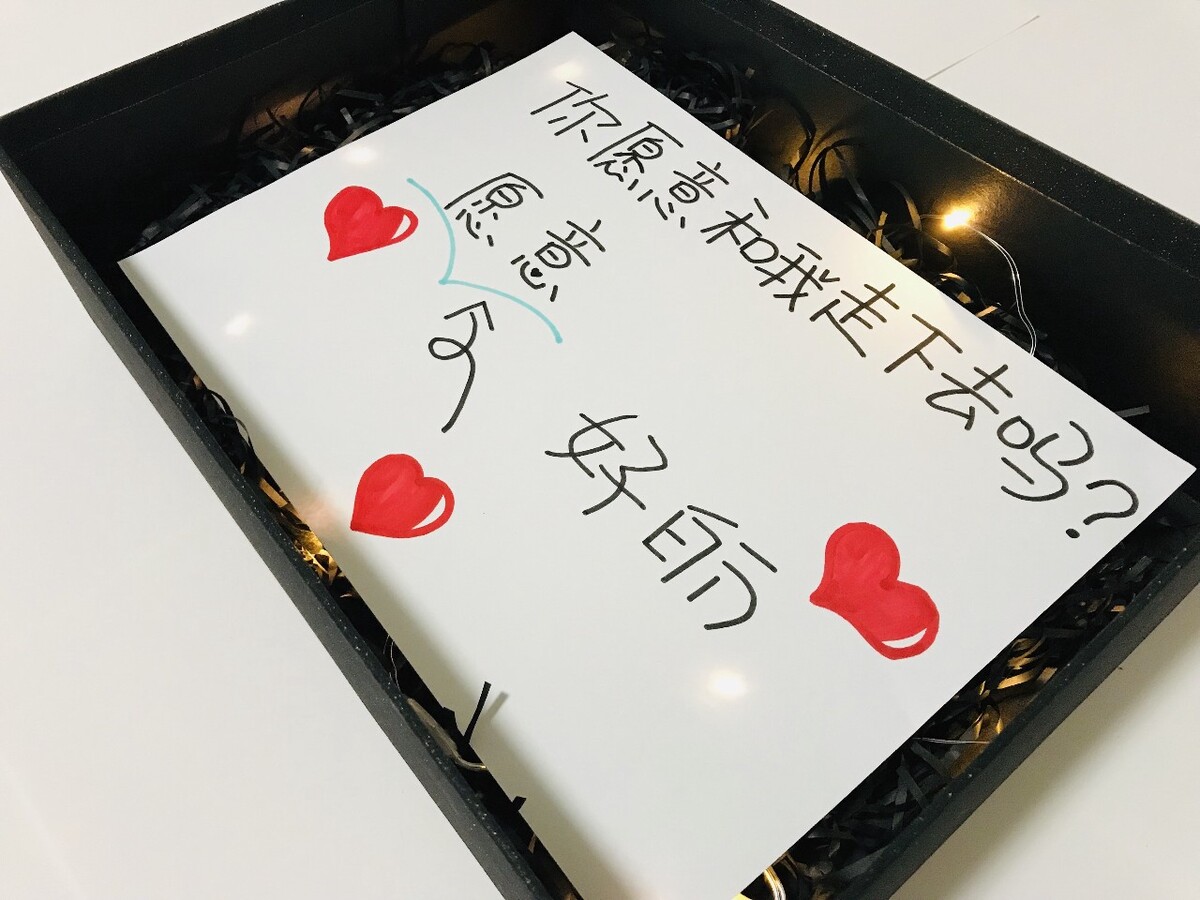 你愿意和我走下去吗?
愿意
好的